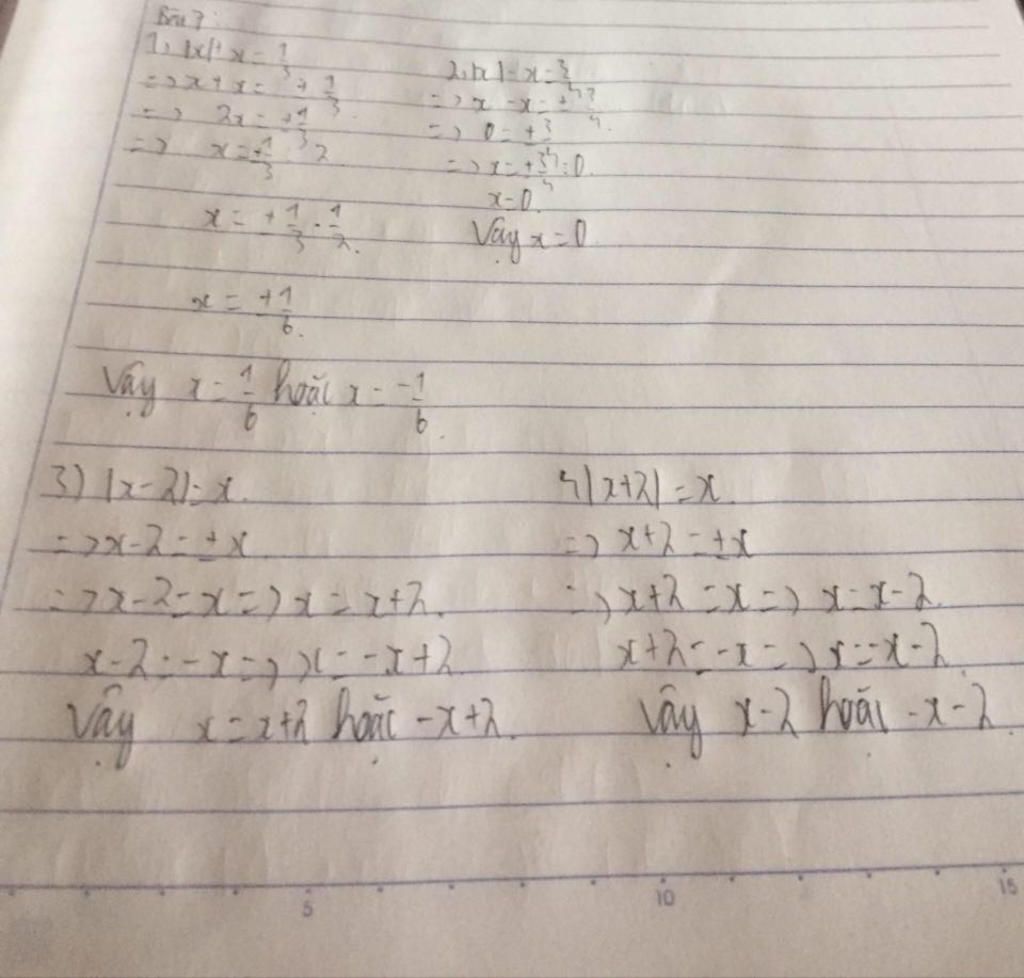 Bài 7:
1, |x| + x = 1/3
=> x + x = ± 1/3
=> 2x = ± 1/3
=> x = ± 1/3 : 2
x = ± 1/3 . 1/2.
x = ± 1/6.
Vậy x = 1/6 hoặc x = -1/6.
2, |x| - x = 3/4
=> x - x = ± 3/4.
=> 0 = ± 3/4
=> x = ± 3/4 : 0.
x = 0.
Vậy x = 0
3) |x - 2| = x.
=> x - 2 = ± x
=> x - 2 = x => x = x + 2.
x - 2 = -x => x = -x + 2
Vậy x = x + 2 hoặc -x + 2.
4 |x + 2| = x.
=> x + 2 = ± x
=> x + 2 = x => x = x - 2.
x + 2 = -x => x = -x - 2.
Vậy x - 2 hoặc -x - 2.
5 10 15